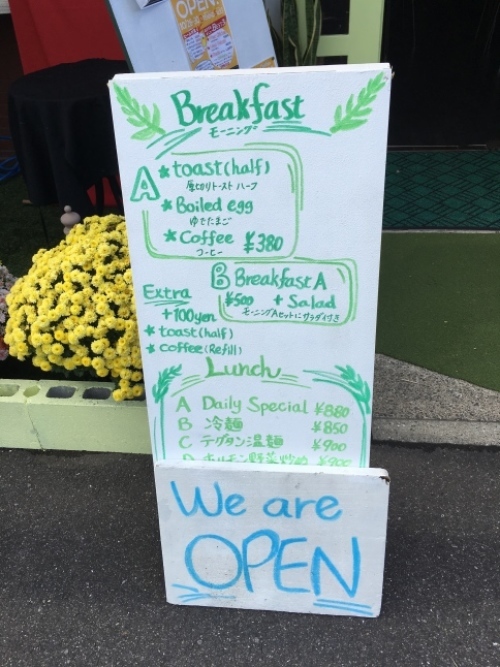 OPEN!
Breakfast
モーニング
A
*toast(half)
厚切りトースト ハーフ
*Boiled egg
ゆでたまご
*Coffee ¥380
コーヒー
B Breakfast A
¥500 + Salad
モーニングAセットにサラダ付き
Extra
+100yen
*toast(half)
*coffee(Refill)
Lunch
A Daily Special ¥880
B 冷麺 ¥850
C テグタン温麺 ¥900
D ホルモン野菜炒め ¥900
We are
OPEN